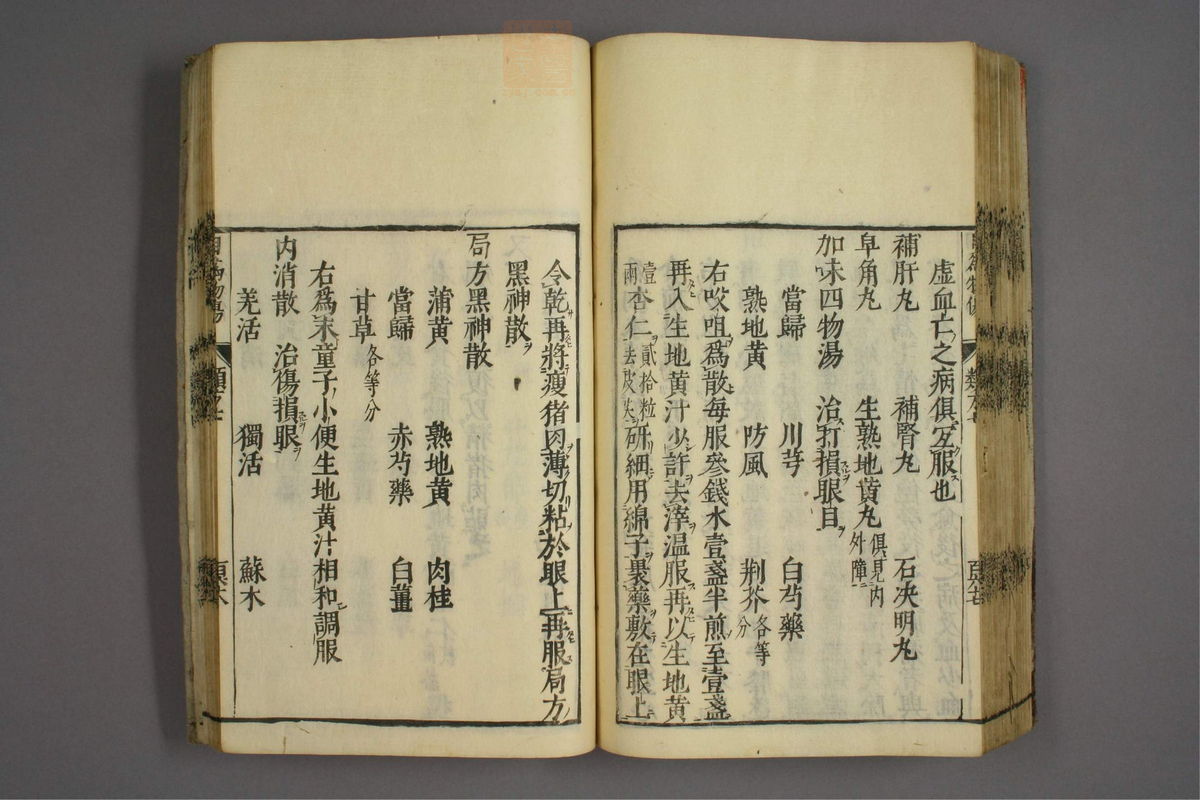 虛血亡之病俱互服也
補肝丸　補腎丸　石决明丸
皁角丸　生熟地黄丸俱見内外障
加味四物湯　治打損眼目
當歸　川芎　白芍藥
熟地黄　防風　荆芥各等分
右㕮咀爲散每服叄錢水壹盞半煎至壹盞
再入生地黄汁少許去滓温服再以生地黄
壹兩杏仁貳拾粒去皮尖研細用綿子裹藥敷在眼上
令乾再將瘦猪肉薄切粘於眼上再服局方
黑神散
局方黑神散
蒲黄　熟地黄　肉桂
當歸　赤芍藥　白薑
甘草各等分
右爲末童子小便生地黄汁相和調服
内消散　治傷損眼
羌活　獨活　蘇木